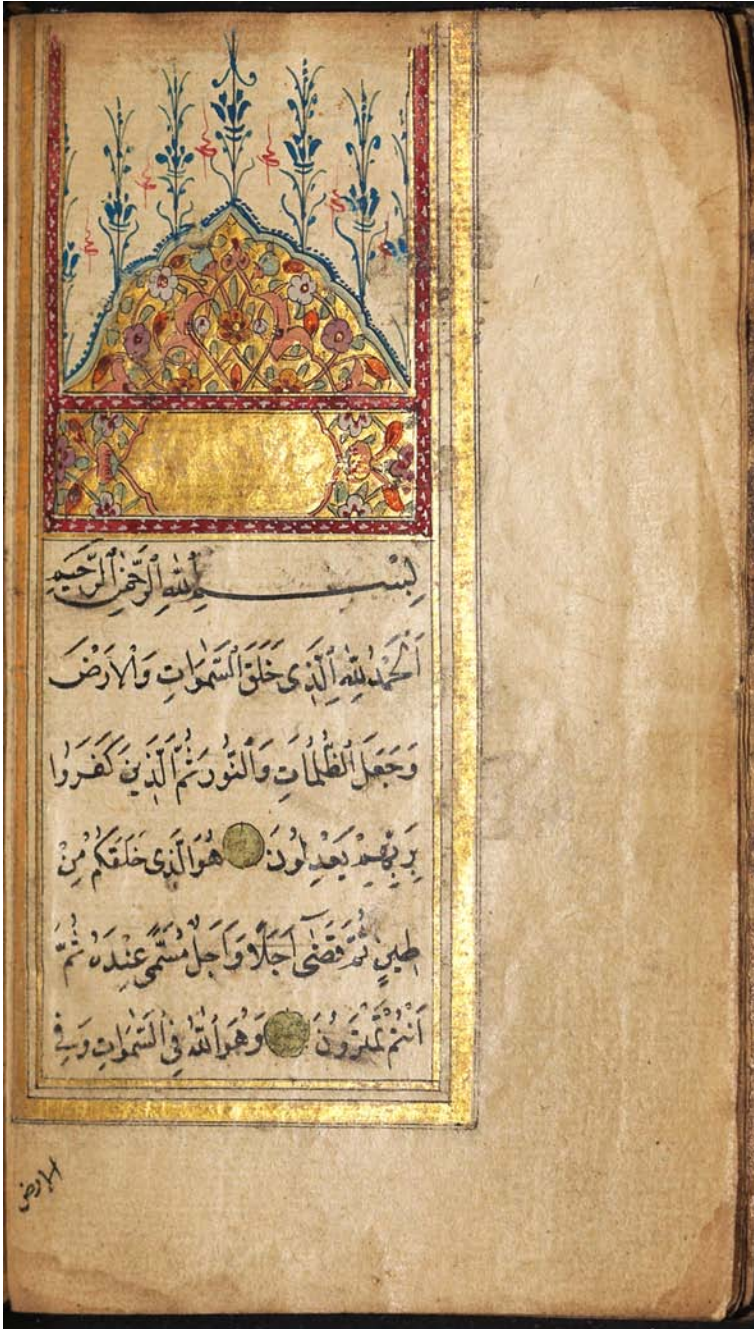 بِسْمِ ٱللّٰهِ ٱلرَّحْمٰنِ ٱلرَّحِيمِ
اَلْحَمْدُ لِلّٰهِ ٱلَّذِى خَلَقَ ٱلسَّمٰوَاتِ وَٱلْاَرْضَ
وَجَعَلَ ٱلظُّلُمَاتِ وَٱلنُّورَ ثُمَّ ٱلَّذِينَ كَفَرُوا
بِرَبِّهِمْ يَعْدِلُونَ هُوَ ٱلَّذِى خَلَقَكُمْ مِنْ
طِينٍ ثُمَّ قَضٰٓى اَجَلًا وَاَجَلٌ مُسَمًّى عِنْدَهُ ثُمَّ
اَنْتُمْ تَمْتَرُونَ وَهُوَ ٱللّٰهُ فِى ٱلسَّمٰوَاتِ وَفِى
الارض